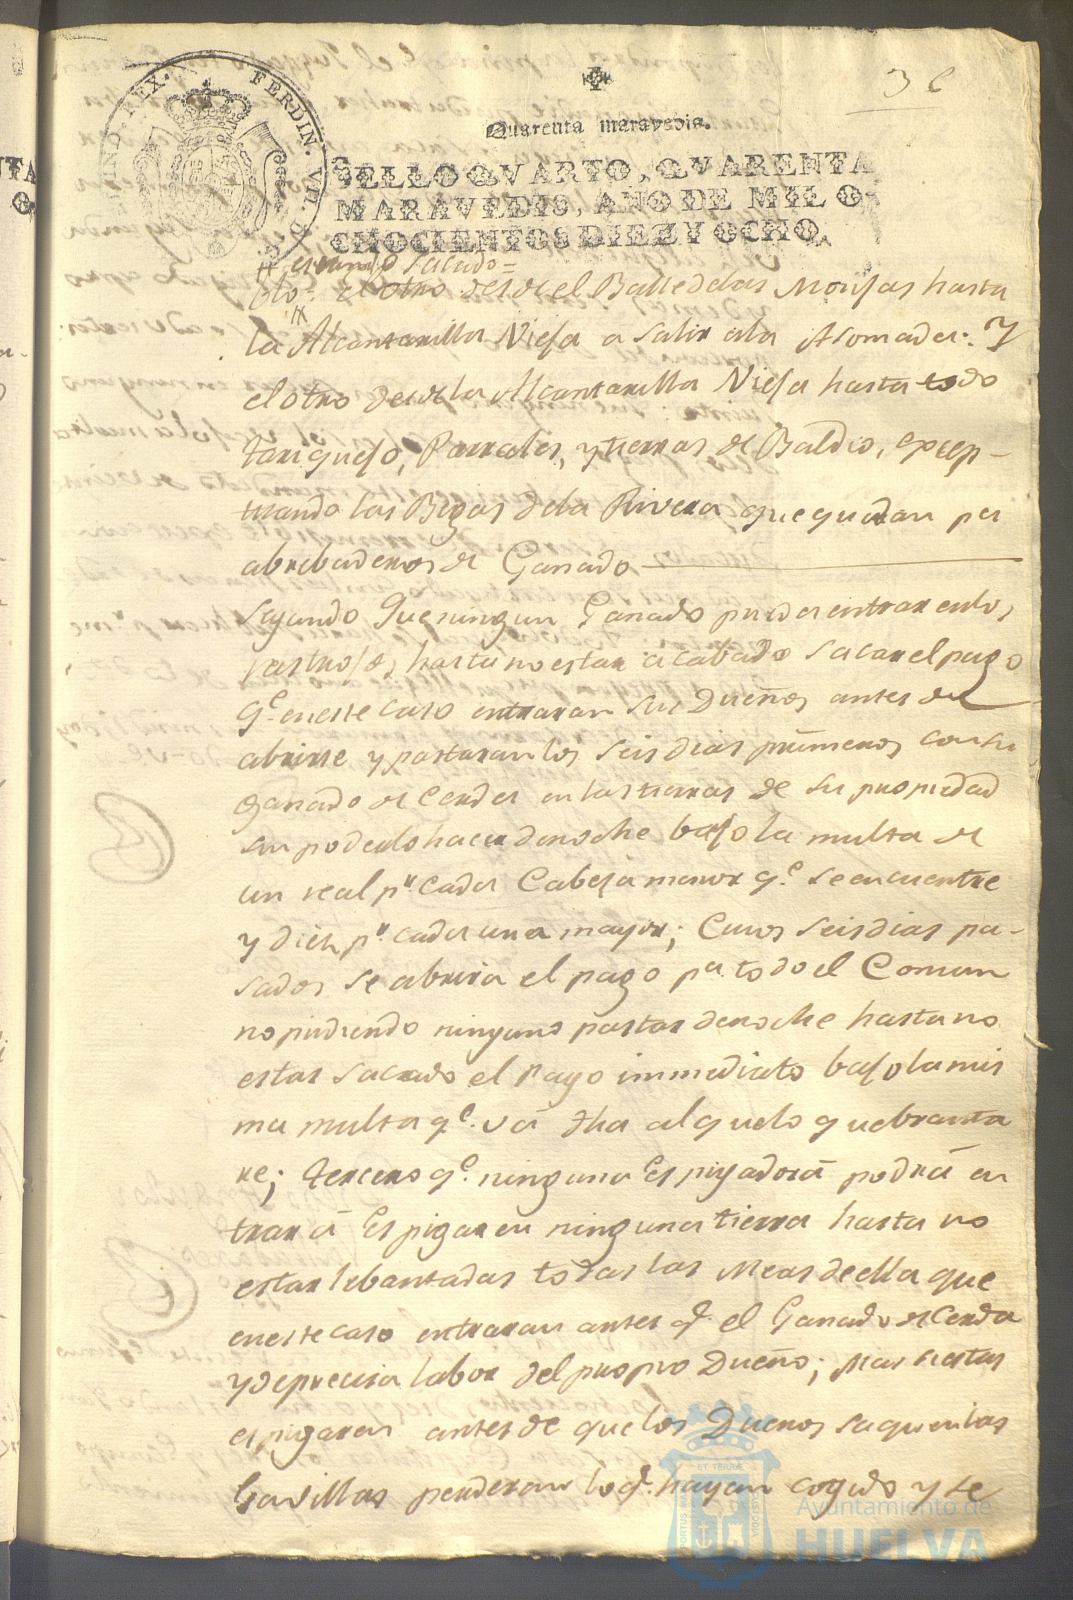 36
Quarenta maravedis.
HISPAN. ET IND. REX. FERDIN. VII. D. G.
SELLO QVARTO, QVARENTA
MARAVEDIS, AÑO DE MIL O-
CHOCIENTOS DIEZ Y OCHO.
estando sacado=
el otro desde el Balle delas Monjas hasta
la Alcantarilla Vieja a salir ala Asomada: Y
el otro desde la Alcantarilla Vieja hasta todo
tariquejo, Parrales, y tierras de Baldio, excep-
tuando las Begas dela Rivera que quedan por
abrebaderos de Ganado
Segundo Que ningun Ganado pueda entrar enlos
rastrojos, hasta no estar acabado sacar el pago
q.e eneste caso entraran sus Dueños antes de
abrirse y pastaran los seis dias primeros con su
ganado de Cerda en las tierras de su propiedad
sin poderlo hacer denoche bajo la multa de
un real p.r cada Cabesa menor q.e se encuentre
y diez p.r cada una mayor; Cuios seis dias pa-
sados se abrira el pago p.a todo el Comun
no pudiendo ninguno pastar denoche hasta no
estar sacado el Pago immediato bajo la mis
ma multa q.e vá dha al que lo quebranta
re; tercero q.e ninguna Espigadora podrá en
trar á Espigar en ninguna tierra hasta no
estar lebantadas todas las Meas de ella que
eneste caso entraran antes q.e el Ganado de Cerda
y de precisa labor del propio Dueño; Mas si estas
espigaren antes de que los Duenos saquen las
Gavillas perderan lo q.e hayan cogido y se
ET TERRAE
PORTUS
CUSTODIA
Ayuntamiento de
HUELVA